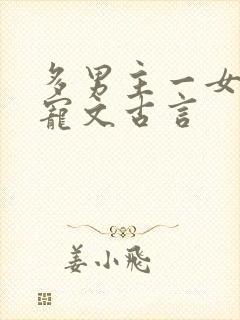 多男主一女
宠文古言
姜小飛